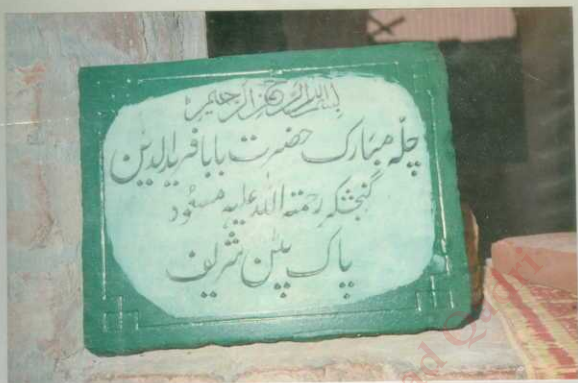 بسم الله الرحمن الرحیم
چلّہ مبارک حضرت بابا فرید الدین
گنجشکر رحمتہ اللہ علیہ مسعُود
پاک پتن شریف